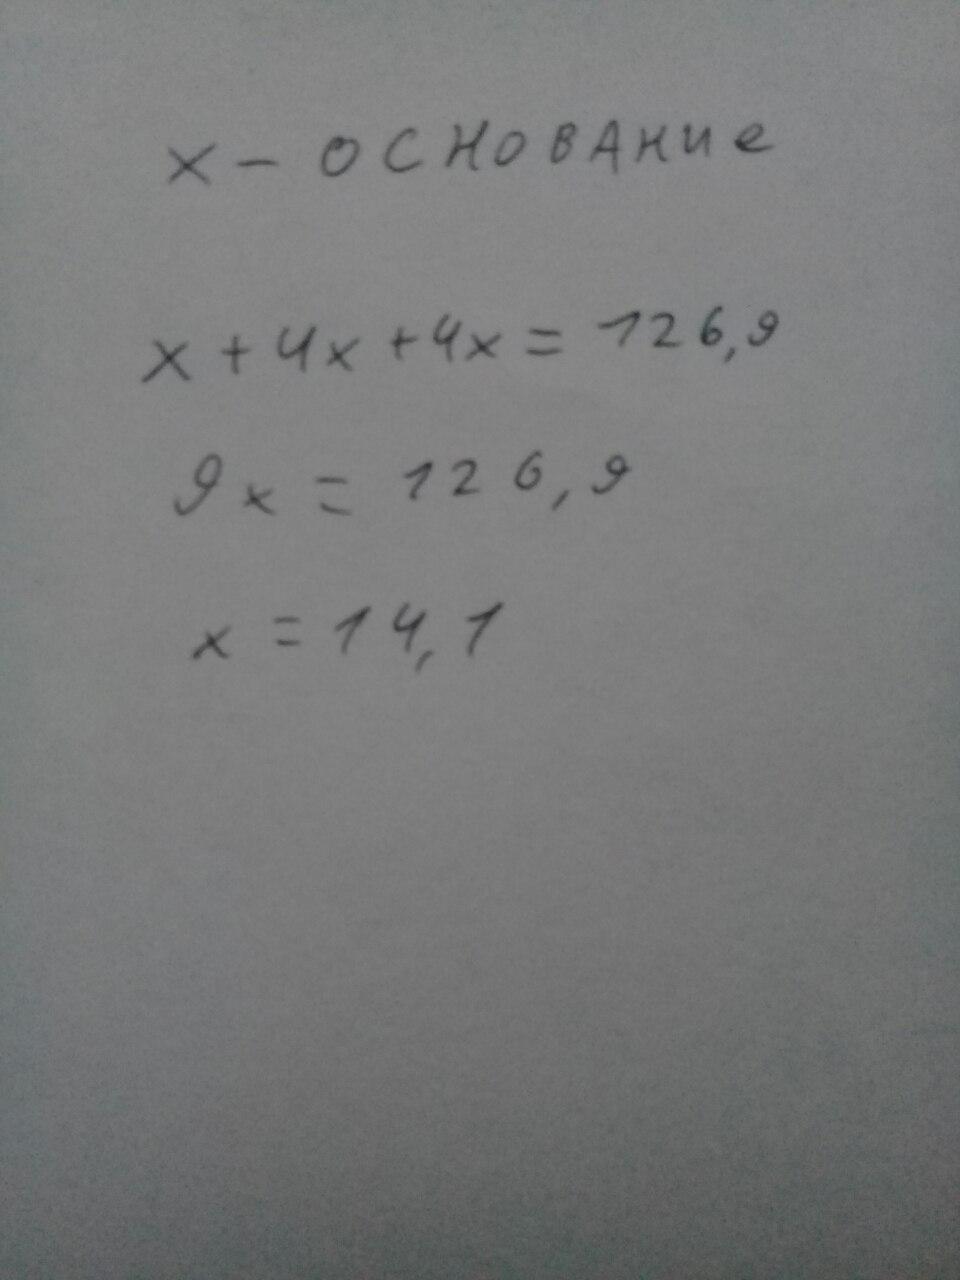 x - основание
x + 4x + 4x = 126,9
9x = 126,9
x = 14,1